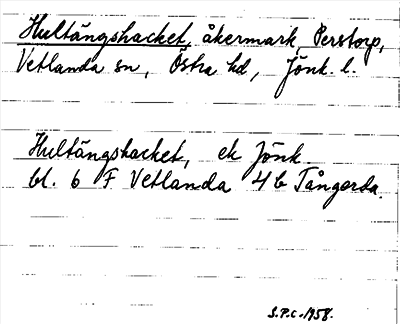 Hultängshacket, åkermark, Perstorp,
Vetlanda sn, Östra hd, Jönk. l.
Hultängshacket, ek Jönk.
bl. 6 F Vetlanda 4 b Tångerda.
S.P.C. 1958.